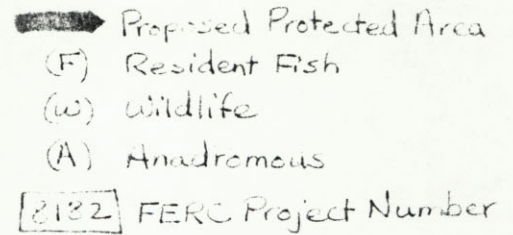 Proposed Protected Area
(F) Resident Fish
(W) Wildlife
(A) Anadromous
8182 FERC Project Number